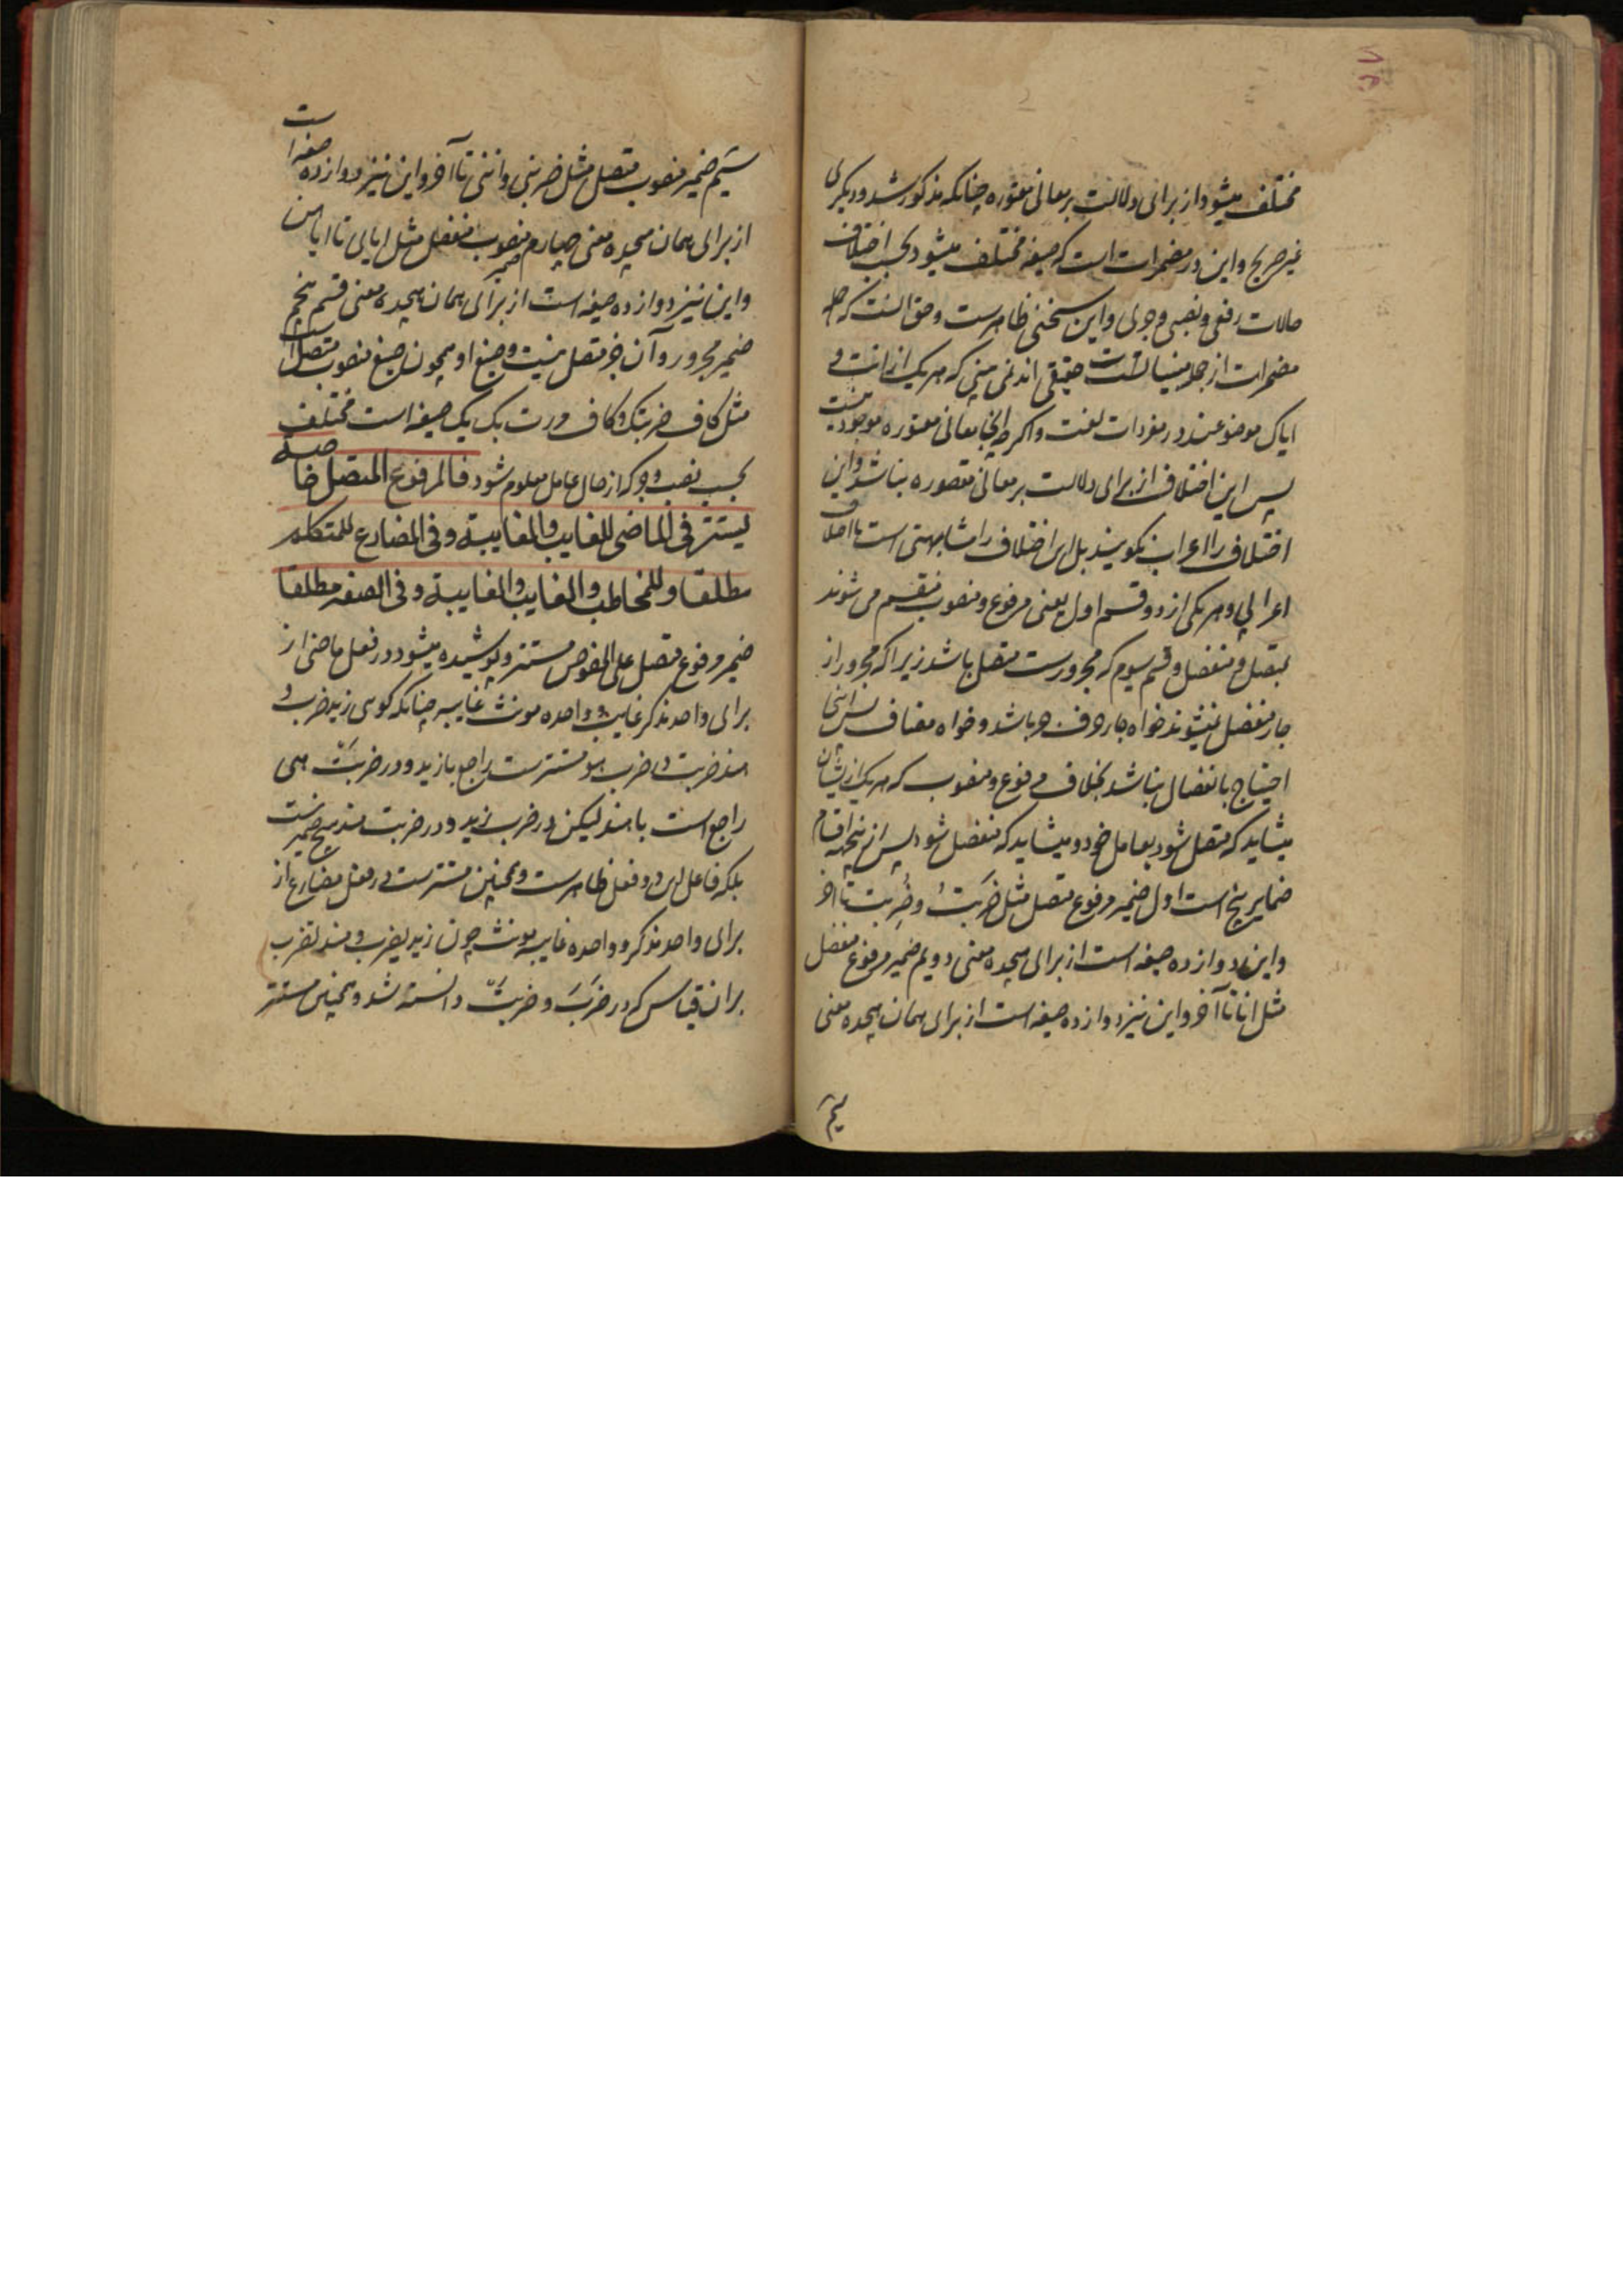 مختلف میشود از برای دلالت بر معانی معتوره چنانکه مذکور شد و دیگری
غیر صریح و این در مضمرات است که صیغه مختلف میشود بحسب اختلاف
حالات رفعی و نصبی و جری و این سخنی ظاهرست و حق آنست که
مضمرات از جمله مبنیات حقیقی اند نمی بینی که هر یک از انت و
ایاک موضوعند در مفردات لغت و اگرچه اینجا معانی معتوره موجود نیست
پس این اختلاف از برای دلالت بر معانی مقصوره نباشد و این
اختلاف را اعراب نگویند بل این اختلاف را مشابهتی است با اختلاف
اعرابی و هر یکی از دو قسم اول یعنی مرفوع و منصوب منقسم می شوند
بمتصل و منفصل و قسم سیوم که مجرورست متصل باشد زیرا که مجرور از
جار منفصل نمیشوند خواه جار حرف جر باشد و خواه مضاف پس اینجا
احتیاج بانفصال نباشد بخلاف مرفوع و منصوب که هر یک از ایشان
میشاید که متصل شود بعامل خود و میشاید که منفصل شود پس از نیجهة اقسام
ضمایر پنج است اول ضمیر مرفوع متصل مثل ضَرَبتُ و ضُرِبت تا آخر
و این دوازده صیغه است از برای هیجده معنی دویم ضمیر مرفوع منفصل
مثل انا تا آخر و این نیز دوازده صیغه است از برای همان هیجده معنی
سیم
سیم ضمیر منصوب متصل مثل ضربنی و اننی تا آخر و این نیز دوازده صیغه است
از برای همان هیجده معنی چهارم ضمیر منصوب منفصل مثل ایای تا ایاهن
و این نیز دوازده صیغه است از برای همان هیجده معنی قسم پنجم
ضمیر مجرور و آن جز متصل نیست و صیغ او همچون صیغ منصوب متصل است
مثل کاف ضربتک و کاف مررت بک یک صیغه است مختلف
بحسب نصب و جر که از حال عامل معلوم شود فالمرفوع المتصل خاصة
یستتر فی الماضی للغایب والغایبة و فی المضارع للمتکلم
مطلقا و للمخاطب والغایب والغایبة و فی الصفه مطلقا
ضمیر مرفوع متصل علی الخصوص مستتر و پوشیده میشود در فعل ماضی از
برای واحد مذکر غایب و واحده مونث غایبه چنانکه گویی زید ضرب و
هند ضربت در ضرب هو مستترست راجع بازید و در ضربَتْ هی
راجع است با هند لیکن در ضرب زید و در ضربت هند هیچ ضمیر نیست
بلکه فاعل این دو فعل ظاهرست و همچنین مستترست در فعل مضارع از
برای واحد مذکر و واحده غایبه مونث چون زید یضرب و هند تضرب
بران قیاس که در ضَرَبَ و ضربتْ دانسته شد و همچنین مستتر